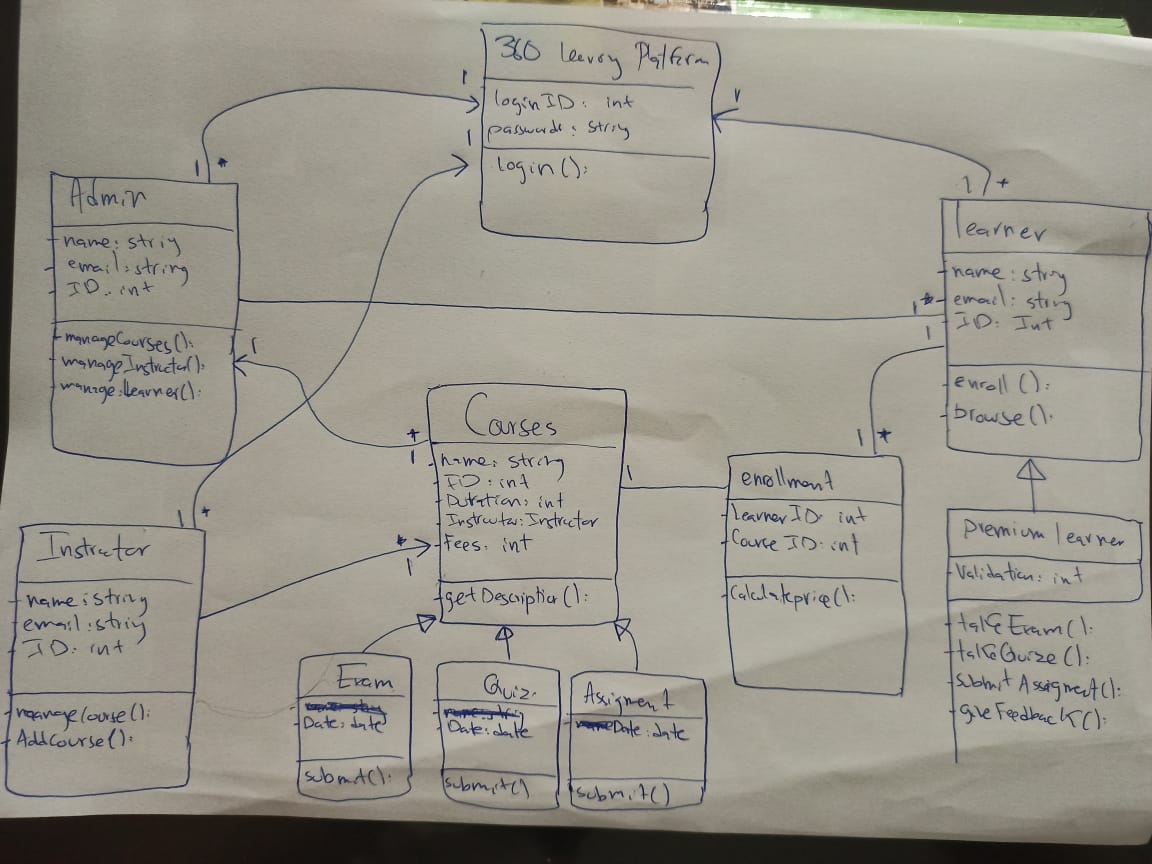 360 Learning Platform
loginID: int
password: string
login():
1
1
1
1 *
Admin
name: string
email: string
ID: int
manageCourses():
manageInstructor():
manageLearner():
1
1 *
learner
name: string
email: string
ID: Int
enroll():
browse():
1 *
1
1 *
Courses
name: string
ID: int
Duration: int
Instructor: Instructor
Fees: int
getDescription():
*
1
1
enrollment
Learner ID: int
Course ID: int
Calculateprice():
premium learner
Validation: int
takeExam():
takeQuize():
submit Assigment():
giveFeedback():
1 *
Instructor
name: string
email: string
ID: int
manageCourse():
AddCourse():
*
1
Exam
Date: date
submit():
Quiz
Date: date
submit()
Assigment
Date: date
submit()